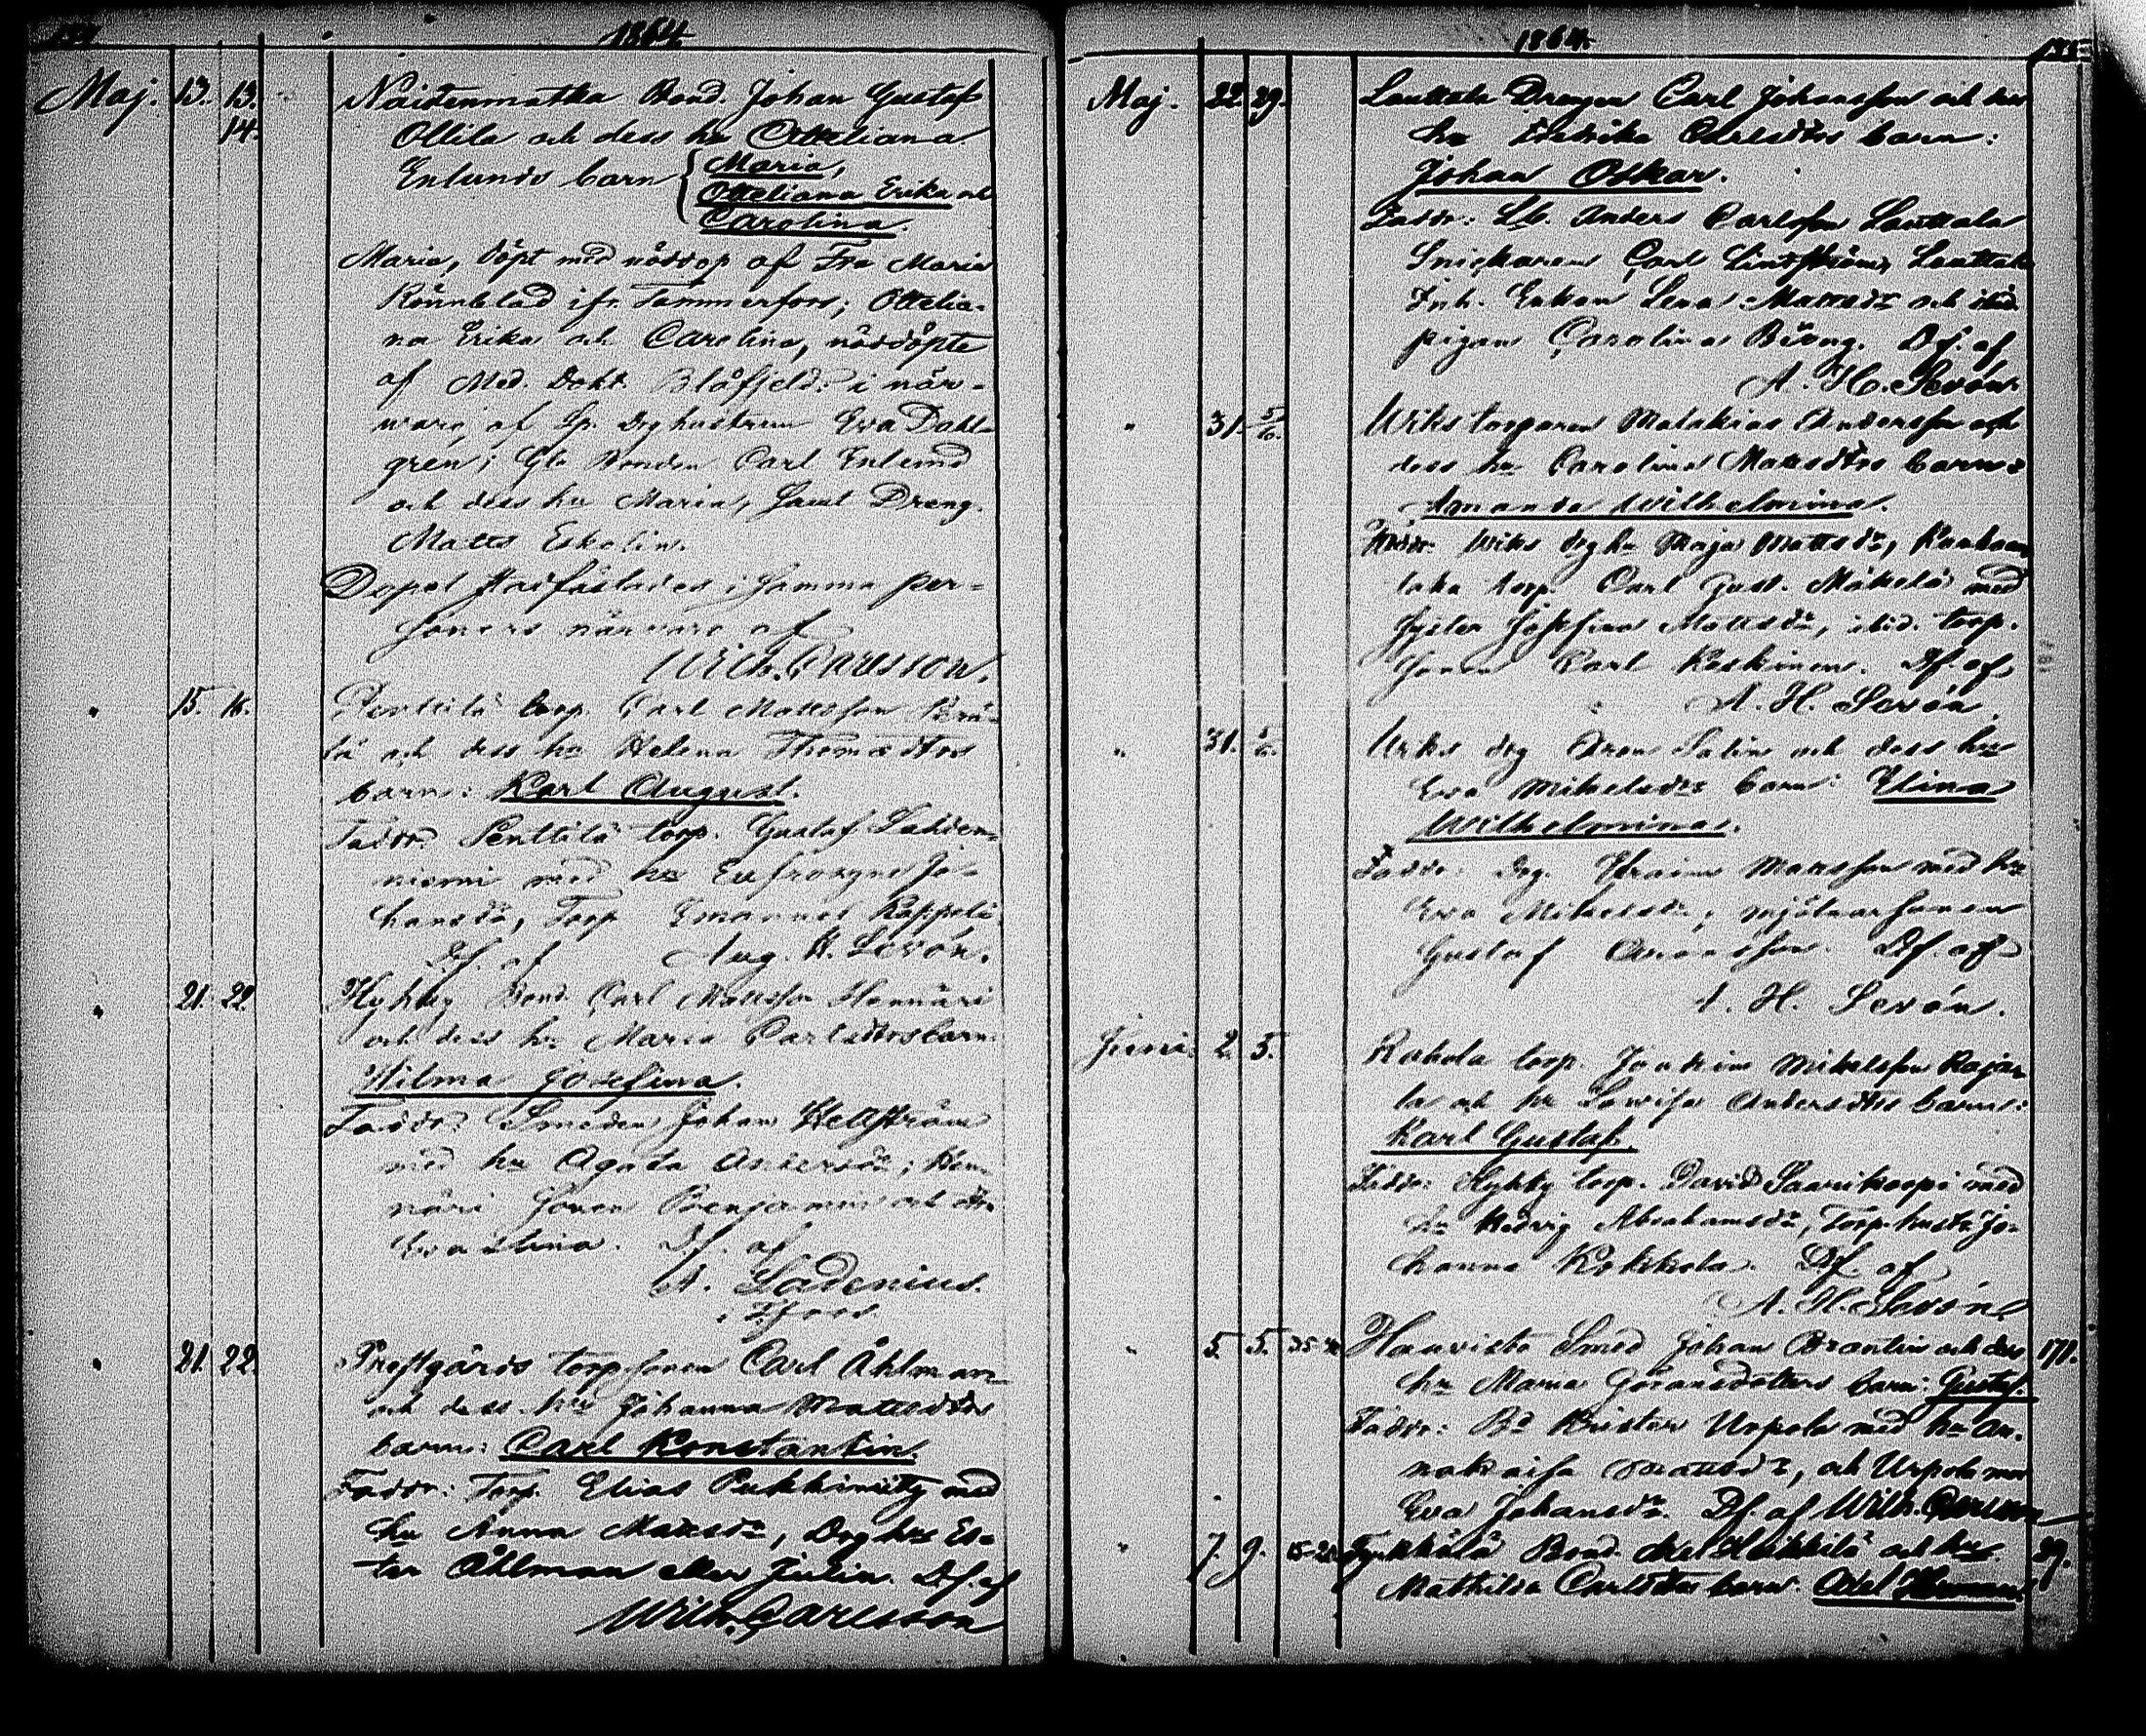 1864.
Maj. 13. 13. Naistenmatka Bond. Johan Gustaf
14. Ollila och dess hu Otteliana
Enlunds barn Maria,
Otteliana Erika och
Carolina.
Maria, döpt med nöddop af Fru Maria
Rönnblad ifr. Tammerfors; Ottelia-
na Erika och Carolina, nöddöpte
af Med. Dokt. Blåfjeld i när-
waro af Sp. drghustrun Eva Dahl-
gren; Gla Bonden Carl Enlund
och dess hu Maria, samt Dreng.
Matts Eskolin.
Dopet stadfästades i samma per-
soners närvaro af
Wilh. Carlsson.
" 15. 16. Penttilä torp. Carl Mattsson
och dess hu Helena Thomædtrs
barn: Karl August.
Faddr. Penttilä torp. Gustaf Lahden-
niemi med hu Eufrosyne Jo-
hansdr, Torp. Emanuel
Df. af Aug. H. Sevón.
" 21. 22. Hyhky Bond. Carl Mattsson Hannäri
och dess hu Maria Carlsdtrs barn:
Wilma Josefina.
Faddr. Smeden Johan Hellström
med hu Agata Andersdr; Han-
näri sonen Benjamin och dtr.
Eva Stina. Df. af
A. Ladenius.
T.fors.
" 21. 22. Prestgårds torp.sonen Carl Åhlman
och dess hu Johanna Mattsdtrs
barn: Carl Konstantin.
Faddr: Torp. Elias Pukkimäky med
hu Anna Mattsdr, Drg hu Es-
ter Åhlman eller Julin. Df. af
Wilh. Carlsson
1864.
Maj. 22. 29. Lauttala Drengen Carl Johansson och des
hu Fredrika Carlsdtrs barn:
Johan Oskar.
Faddr: Anders Carlsson Lauttala
Snickaren Carl Lindström, Lauttala
Inh. Enkan Lena Mattsdr och ibid.
pigan Carolina Bäng. Df. af
A. H. Sevón.
" 31. 5/6. Wiks torparen Malakias Andersson och
dess hu Carolina Mattsdtrs barn:
Amanda Wilhelmina.
Faddr: Wiks drg hu Maja Mattsdr,
torp. Carl Gust. Mäkelä med
syster Josefina Mattsdr, ibid. torp.
sonen Carl Koskinen. Df. af
A. H. Sevón.
" 31. Wiks drg Aron Salin och dess hu
Eva Mikelsdtrs barn: Elina
Wilhelmina.
Faddr: Drg. Efraim Mattsson med hu
Eva Mikelsdr, mjölnarsonen
Gustaf Aronsson. Df. af
A. H. Sevón.
Juni. 2. 5. Rahola torp. Joakim Mikelsson Raja-
la och hu Lovisa Andersdtrs barn:
Karl Gustaf.
Faddr: Hyhky torp. David Saarikoopi med
hu Hedvig Abrahamsdr, Torp.hustr. Jo-
hanna Kokkola. Df. af
A. H. Sevón.
" 5. 5. Haavisto Smed Johan Brantin och dess
hu Maria Göransdotters barn: Gustaf.
Faddr: Bd Krister Uspola med hu An-
nakaisa Mattsdr, och Uspola
Eva Johansdr. Df. af Wilh. Carlsson
" 7. 9. Hyhkkälä Bond. Axel Heikkilä och hu
Mathilda Carlsdtrs barn. Axel Herman.